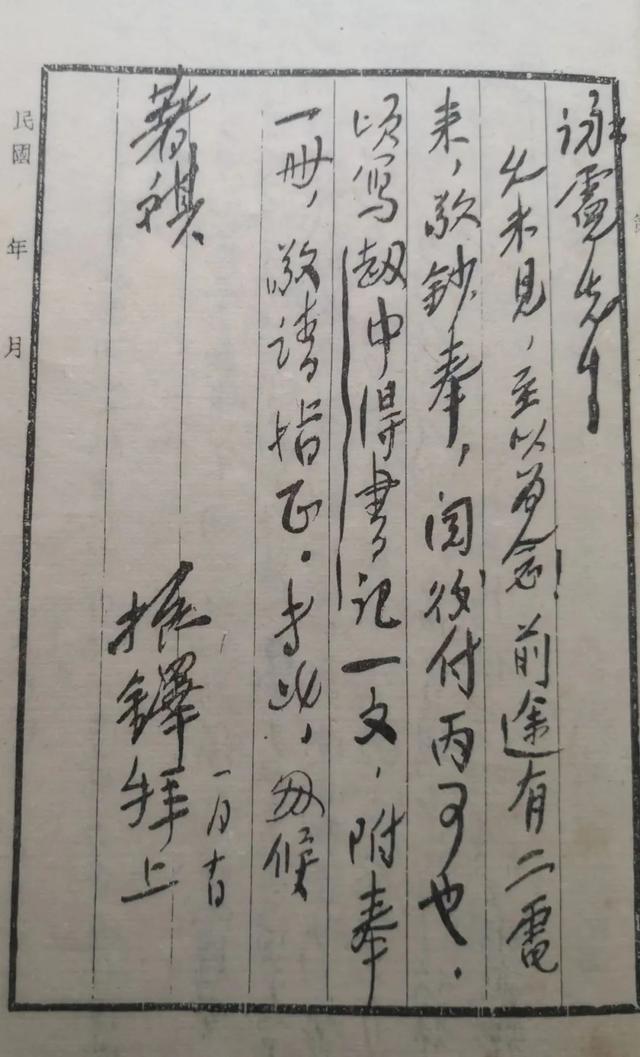 詠霓先生
久未見，至以為念！前途有二電
来，敬鈔奉，閱後付丙可也．
頃寫劫中得書記一文，附奉
一冊，敬請指正．専此，敬候
著祺
振鐸拜上
一月十一日
民國 年 月